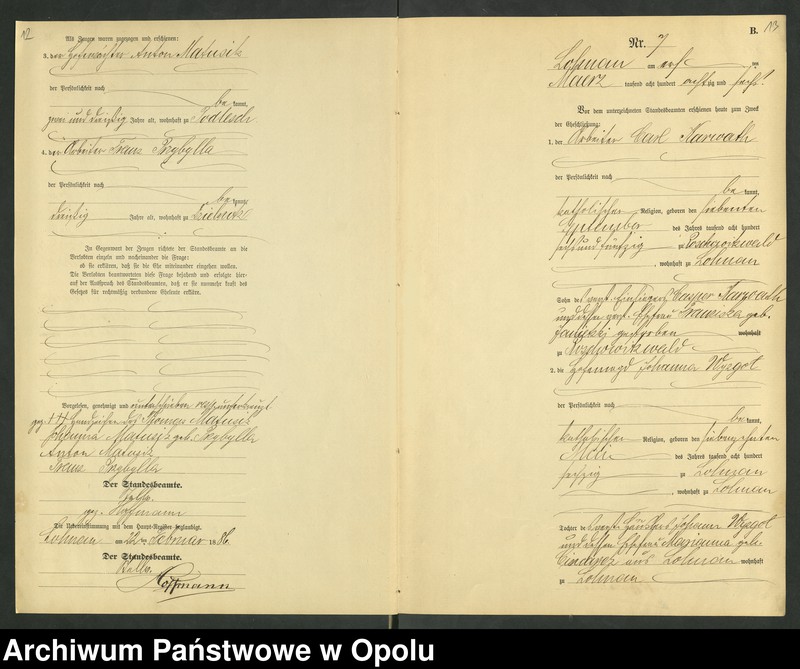 12
Als Zeugen waren zugezogen und erschienen:
3. der Hofewächter Anton Matusik
der Persönlichkeit nach
be kannt,
zwei und dreißig Jahre alt, wohnhaft zu
4. der Arbeiter Franz Przybylla
der Persönlichkeit nach
be kannt,
dreißig Jahre alt, wohnhaft zu
In Gegenwart der Zeugen richtete der Standesbeamte an die
Verlobten einzeln und nacheinander die Frage:
ob sie erklären, daß sie die Ehe miteinander eingehen wollen.
Die Verlobten beantworteten diese Frage bejahend und erfolgte hier-
auf der Ausspruch des Standesbeamten, daß er sie nunmehr kraft des
Gesetzes für rechtmäßig verbundene Eheleute erkläre.
Vorgelesen, genehmigt und
gez. +++ Handzeichen des Thomas Matusik
Johanna Matusik geb. Przybylla
Anton Matusik
Franz Przybylla
Der Standesbeamte.
gez. Hoffmann
Die Uebereinstimmung mit dem Haupt-Register beglaubigt.
Lohnau am Februar 1886.
Der Standesbeamte.
Hoffmann
B. 13
Nr. 7
Lohnau am ten
Maerz tausend acht hundert acht zig und sechs.
Vor dem unterzeichneten Standesbeamten erschienen heute zum Zweck
der Eheschließung:
1. der Arbeiter Carl Karwath
der Persönlichkeit nach
be kannt,
katholischer Religion, geboren den siebenten
September des Jahres tausend acht hundert
sechs und fünfzig zu
, wohnhaft zu Lohnau
Sohn des Caspar Karwath
und dessen Ehefrau Franziska geb.
wohnhaft
zu
2. die Hofemagd Johanna Wyrgol
der Persönlichkeit nach
be kannt,
katholischer Religion, geboren den siebzehnten
Mai des Jahres tausend acht hundert
sechzig zu Lohnau
, wohnhaft zu Lohnau
Tochter des Häuslers Johann Wyrgol
und dessen Ehefrau Marianna geb.
aus Lohnau wohnhaft
zu Lohnau
Archiwum Państwowe w Opolu